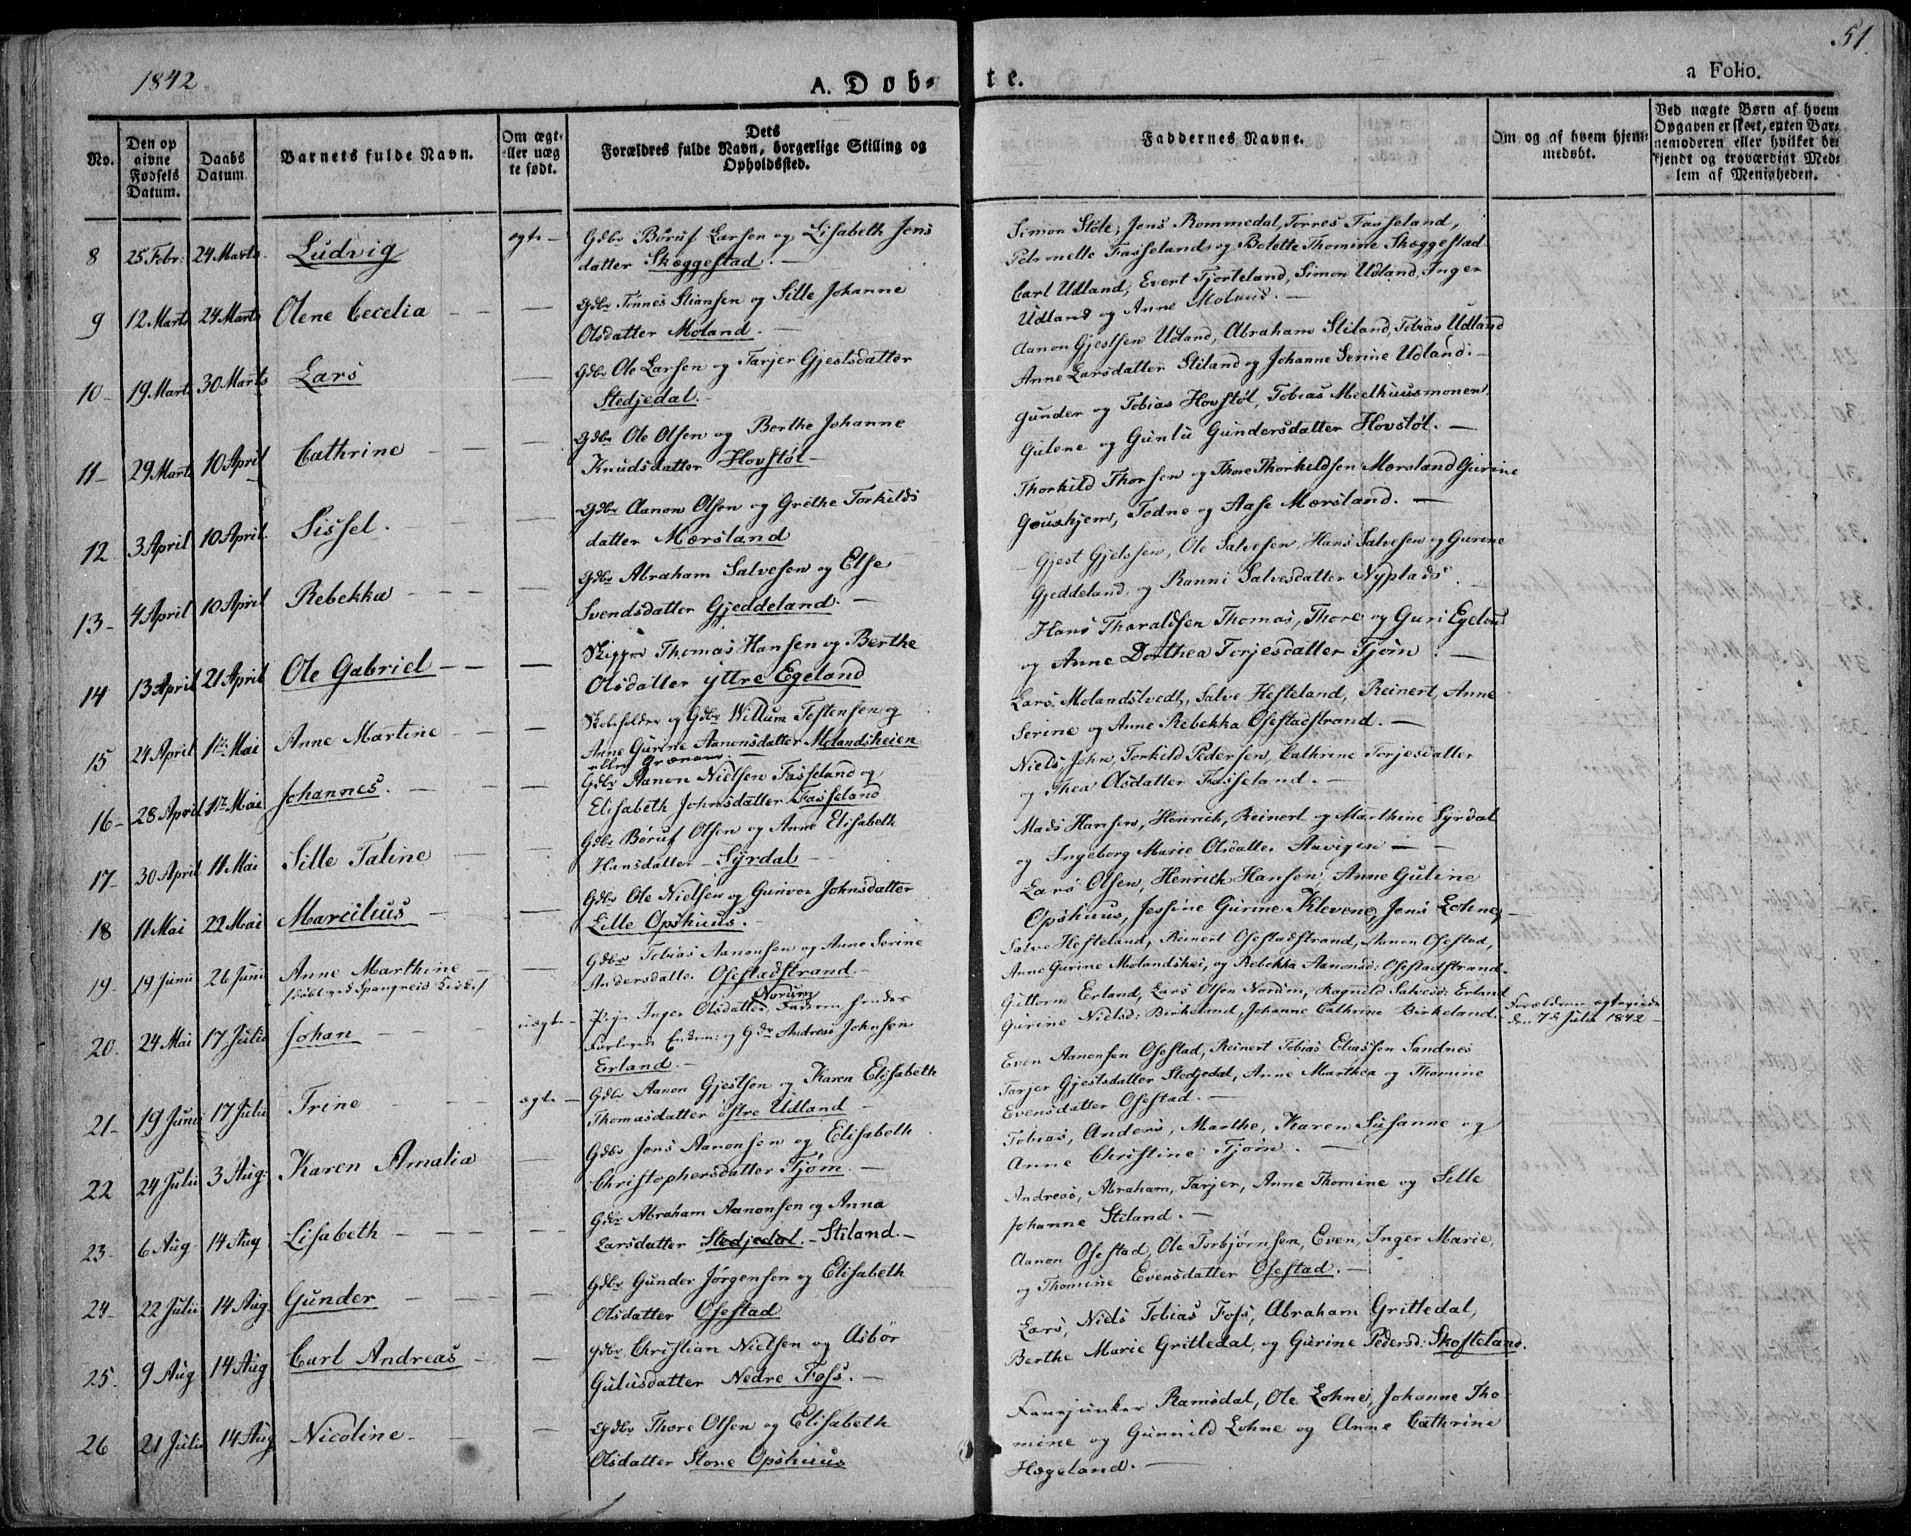 1842
A. Døb-
te.
a Folio.
51.
No.
Den op
givne
Fødsels
Datum.
Daabs
Datum
Barnets fulde Navn.
Om ægt-
eller uæg
te født.
Dets
Forældres fulde Navn, borgerlige Stilling og
Opholdssted.
Faddernes Navne.
Om og af hvem hjem-
medøbt.
Ved uægte Børn af hvem
Opgaven er skeet, enten Bar-
nemoderen eller hvilket be-
kjendt og troværdigt Med-
lem af Menigheden.
8 25 Febr: 24 Marts Ludvig ægte –
Gdbr Børuf Larsen og Lisabeth Jens
datter Skæggestad. –
Simon Støle, Jens Rommedal, Torres Fasseland,
Petronelle Fasseland og Bolette Thomine Skæggestad
9 12 Marts 24 Marts Olene Cecelia
Gdbr Tønnes Stiansen og Sille Johanne
Olsdatter Moland. –
Carl Udland, Evert Tjorteland, Simon Udland, Inger
Udland og Anne Moland. –
10 – 19 Marts 30 Marts Lars
Gdbr Ole Larsen og Tarjer Gjestsdatter
Stedjedal. –
Aanon Gjestsen Udland, Abraham Stiland, Tobias Udland
Anne Larsdatter Stiland og Johanne Serine Udland. –
11 – 29 Marts 10 April Cathrine
Gdbr Ole Olsen og Berthe Johanne
Knudsdatter Hovstøl –
Gunder og Tobias Hovstøl, Tobias Meelhuusmonen,
Gulene og Guntu Gundersdatter Hovstøl. –
12 3 April 10 April. Sissel.
Gdbr Aanon Olsen og Grethe Torkilds
datter Mærsland
Thorkild Thorsen og Thore Thorkildsen Mærsland Gurine
Goushjem, Todne og Aase Mærsland. –
13 – 4 April 10 April Rebekka
Gdbr Abraham Salvesen og Else
Svendsdatter Gjeddeland. –
Gjest Gjelssen, Ole Salvesen, Hans Salvesen og Gurine
Gjeddeland, og Ranni Salvesdatter Nyplads.
14 13 April 21 April Ole Gabriel
Skipper Thomas Hansen og Berthe
Olsdatter yttre Egeland
Hans Tharaldsen Thomas, Thore og Guri Egeland
og Anne Dorthea Torjesdatter Tjøm. –
15 24 April 1ste Mai Anne Martine
Skoleholder og Gdbr Willum Tostensen og
Anne Gurine Aanonsdatter Molandsheien
Lars Molandslvedt, Salve Hesteland, Reinert, Anne
Serine og Anne Rebekka Osestadstrand. –
16 – 28 April 1ste Mai Johannes.
Gdbr Aanon Nielsen Fasseland og
Elisabeth Johnsdatter Fasseland
Niels, John, Torkild Pedersen, Cathrine Torjesdatter
og Thea Olsdatter Fasseland. –
17 – 30 April 11 Mai Sille Taline
Gdbr Børuf Olsen og Anne Elisabeth
Hansdatter – Syrdal –
Mads Hansen, Henrich, Reinert og Marthine Syrdal
og Ingeborg Marie Olsdatter Aavigen –
18 11 Mai 22 Mai Marcilius
Gdbr Ole Nielsen og Gunvor Johnsdatter
Lille Opshuus. –
Lars Olsen, Henrich Hansen, Anne Guline
Opshuus, Jessine Gurine Klevene, Jens Lohne, –
19 – 19 Junii 26 Junii Anne Marthine
/døbt ved Spangreids Kirke/
Gdbr Tobias Aanonsen og Anne Serine
Andersdatter Osestadstrand –
Salve Hesteland, Reinert Osestadstrand, Aanon Osestad,
Anne Gurine Molandshei, og Rebekka Aanonsd: Osestadstrand –
20 24 Mai 17 Julii Johan uægte –
Pige Inger Olsdatter Norum
og Gdr Andreas Johnsen
Erland. –
Guttorm Erland, Lars Olsen Nordm, Ragnild Salvesd: Erland
Gurine Nielsd: Birkeland, Johanne Cathrine Birkeland.
Forældrene ægteviede
den 7de Julii 1842 –
21 – 19 Junii 17 Julii Trine ægte –
Gdbr Aanon Gjestsen og Karen Elisabeth
Thomasdatter østre Udland –
Even Aanonsen Osestad, Reinert Tobias Eliassen Sandnes
Tarjer Gjestsdatter Stedjedal, Anne Marthea og Thomine
Evensdatter Osestad. –
22 24 Julii 3 Aug: Karen Amalia
Gdbr Jens Aanonsen og Elisabeth
Christophersdatter Tjøm. –
Tobias, Anders, Marthe, Karen Susanne og
Anne Christine Tjøm. –
23 – 6 Aug 14 Aug Lisabeth
Gdbr Abraham Aanonsen og Anna
Larsdatter Stedjedal. – Stiland. –
Andreas, Abraham, Tarjer, Anne Thomine og Sille
Johanne Stiland. –
24 – 22 Julii 14 Aug. Gunder
Gdbr Gunder Jørgensen og Elisabeth
Olsdatter Osestad
Aanon Osestad, Ole Torbjørnsen, Even, Inger Marie,
og Thomine Evensdatter Osestad. –
25. 9 Aug 14 Aug Carl Andreas
Gdbr Christian Nielsen og Asbør
Gulusdatter Nedre Foss. –
Lars, Niels Tobias Foss, Abraham Grittedal,
Berthe Marie Grittedal, og Gurine Pedersd: Skofteland.
26 21 Julii 14 Aug Nicoline –
Gdbr Thore Olsen og Elisabeth
Olsdatter Store Opshuus
Fanejunker Ramsdal, Ole Lohne, Johanne Tho
mine og Gunnild Lohne og Anne Cathrine
Hægeland. –